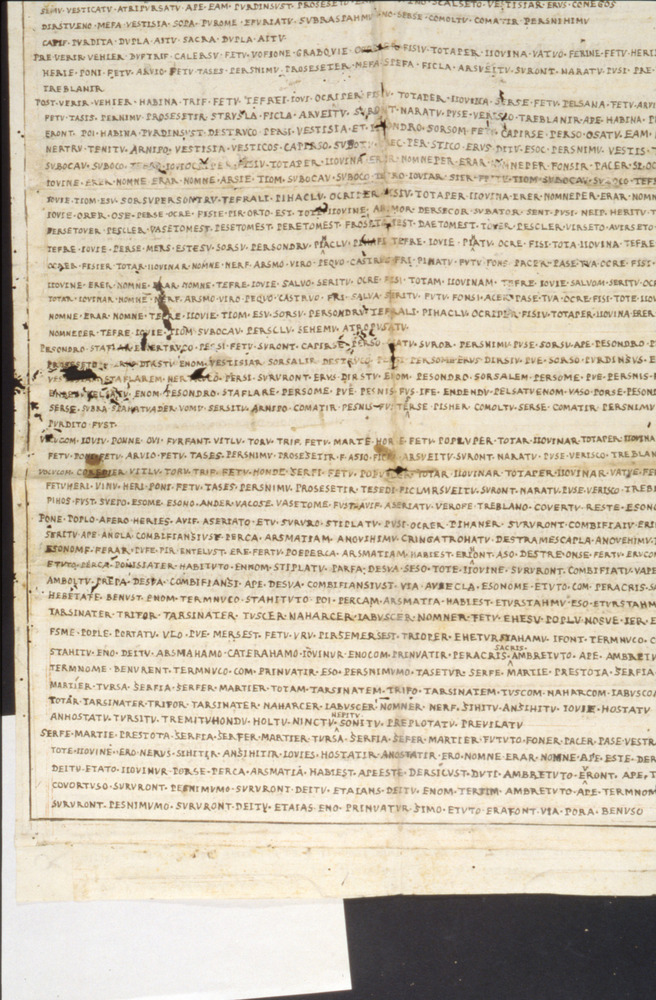 SERVO · VESTICATV · ATRIPVRSATV · APE · EAM · PVRDINSVST · PROSESETO
DIRSTV · ENO · MEFA · VESTISIA · SOPA · PVROME · EFVRIATV · SVBRA · SPAHMV · ENO · SERSE · COMOLTV · COMATIR · PERSNIHIMV
CAPIF · PVRDITA · DVPLA · AITV · SACRA · DVPLA · AITV
PRE · VERIR · VEHIER · BVF · TRIF · CALERSV · FETV · VOFIONE · GRABOVIE · OCRIPER · FISIV · TOTAPER · IIOVINA · VATVO · FERINE · FETV · HERI
HERIE · PONI · FETV · ARVIO · FETV · TASES · PERSNIMV · PROSESETER · MEFA · SPEFA · FICLA · ARSVEITV · SVRONT · NARATV · PVSI · PRE
TREBLANIR
POST · VERIR · VEHIER · HABINA · TRIF · FETV · TEFREI · IOVI · OCRIPER · FISIV · TOTAPER · IIOVINA · SERSE · FETV · PELSANA · FETV · ARVI
FETV · TASIS · PERNIMV · PROSESETIR · STRVSLA · FICLA · ARVEITV · SVRONT · NARATV · PVSE · VERISCO · TREBLANIR · APE · HABINA
ERONT · POI · HABINA · PVRDINSVST · DESTRVCO · PERSI · VESTISIA · ET · PESONDRO · SORSOM · FETV · CAPIRSE · PERSO · OSATV · EAM
NERTRV · TENITV · ARNIPO · VESTISIA · VESTICOS · CAPIRSO · SVBOTV · ISEC · PERSTICO · ERVS · DITV · ESOC · PERSNIMV · VESTIS
SVBOCAV · SVBOCO · TEFRO · IOVI · OCRIPER · FISIV · TOTAPER · IIOVINA · ERER · NOMNEPER · ERAR · NOMNEPER · FONSIR · PACER · SI · OC
IOVINE · ERER · NOMNE · ERAR · NOMNE · ARSIE · TIOM · SVBOCAV · SVBOCO · TEFRO · IOVI · ARSIER · FRITE · TIOM · SVBOCAV · SVBOCO · TEF
IOVIE · TIOM · ESV · SORSV · PERSONTRV · TEFRALI · PIHACLV · OCRIPER · FISIV · TOTAPER · IIOVINA · ERER · NOMNEPER · ERAR · NOMN
IOVIE · ORER · OSE · PERSE · OCRE · FISIE · PIR · ORTO · EST · TOTE · IIOVINE · ARSMOR · DERSECOR · SVBATOR · SENT · PVSI · NEIP · HERITV
PERSE · TOVER · PESCLER · VASETOMEST · PESETOMEST · PERETOMEST · FROSETOMEST · DAETOMEST · TOVER · PESCLER · VIRSETO · AVIRSETO
TEFRE · IOVIE · PERSE · MERS · EST · ESV · SORSV · PERSONDRV · PIHACLV · PIHAFI · TEFRE · IOVIE · PIHATV · OCRE · FISI · TOTA · IIOVINA · TEFRE
OCRER · FISIER · TOTAR · IIOVINAR · NOMNE · NERF · ARSMO · VIRO · PEQVO · CASTRVO · FRI · PIHATV · FVTV · FONS · PACER · PASE · TVA · OCRE · FISI
IIOVINE · ERER · NOMNE · ERAR · NOMNE · TEFRE · IOVIE · SALVO · SERITV · OCRE · FISI · TOTAM · IIOVINAM · TEFRE · IOVIE · SALVOM · SERITV · OC
TOTAR · IOVINAR · NOMNE · NERF · ARSMO · VIRO · PEQVO · CASTRVO · FRI · SALVA · SERITV · FVTV · FONS · PACER · PASE · TVA · OCRE · FISI · TOTE · IIO
NOMNE · ERAR · NOMNE · TEFRE · IOVIE · TIOM · ESV · SORSV · PERSONDRV · TEFRALI · PIHACLV · OCRIPER · FISIV · TOTAPER · IIOVINA · ERER
NOMNEPER · TEFRE · IOVIE · TIOM · SVBOCAV · PERSCLV · SEHEMV · ATROPVSATV
PESONDRO · STAFLARE · NERTRVCO · PERSI · FETV · SVRONT · CAPIRSE · PERSO · OSATV · SVROR · PERSNIMV · PVSE · SORSV · APE · PESONDRO · P
PROSESETO · DIRSTV · ENOM · VESTISIAR · SORSALIR · DESTRVCO · PERSI · PERSOME · ERVS · DIRSTV · PVE · SORSO · PVRDINSVS · E
VES · STAFLAREM · NERTRVCO · PERSI · SVRVRONT · ERVS · DIRSTV · ENOM · PESONDRO · SORSALEM · PERSOME · PVE · PERSNIS
ENDENDV · PELSATV · ENOM · PESONDRO · STAFLARE · PERSOME · PVE · PESNIS · FVS · IFE · ENDENDV · PELSATV · ENOM · VASO · PORSE · PESOND
SERSE · SVBRA · SPAHATV · ANDER · VOMV · SERSITV · ARNIPO · COMATIR · PESNIS · FVST · SERSE · PISHER · COMOLTV · SERSE · COMATIR · PERSNIMV
PVRDITO · FVST
VOCVCOM · IOVIV · PONNE · OVI · FVRFANT · VITLV · TORV · TRIF · FETV · MARTE · HORSE · FETV · POPLVPER · TOTAR · IIOVINAR · TOTAPER · IIOVINA
FETV · PONI · FETV · ARVIO · FETV · TASES · PERSNIMV · PROSESETIR · FASIO · FICLA · ARSVEITV · SVRONT · NARATV · PVSE · VERISCO · TREBLAN
VOCVCOM · COREDIER · VITLV · TORV · TRIF · FETV · HONDE · SERFI · FETV · POPLVPER · TOTAR · IIOVINAR · TOTAPER · IIOVINA · VATVE · FE
FETV · HERI · VINV · HERI · PONI · FETV · TASES · PERSNIMV · PROSESETIR · TESEDI · FICLM · RSVEITV · SVRONT · NARATV · PVSE · VERISCO · TREB
PIHOS · FVST · SVEPO · ESOME · ESONO · ANDER · VACOSE · VASETOME · FVST · AVIF · ASERIATV · VEROFE · TREBLANO · COVERTV · RESTE · ESON
PONE · POPLO · AFERO · HERIES · AVIF · ASERIATO · ETV · SVRVRO · STIPLATV · PVSI · OCRER · PIHANER · SVRVRONT · COMBIFIATV · ERI
SERITV · APE · ANGLA · COMBIFIANSIVST · PERCA · ARSMATIAM · ANOVIHIMV · CRINGATRO · HATV · DESTRAME · SCAPLA · ANOVEHIMV
ESONOME · FERAR · PVFE · PIR · ENTELVST · ERE · FERTV · POE · PERCA · ARSMATIAM · HABIEST · ERIHONT · ASO · DESTRE · ONSE · FERTV · ERVCO
ETVTO · PERCA · PONISIATER · HABITVTO · ENNOM · STIPLATV · PARFA · DESVA · SESO · TOTE · IIOVINE · SVRVRONT · COMBIFIATV · VAPE
AMBOLTV · PREPA · DESVA · COMBIFIANSI · APE · DESVA · COMBIFIANSIVST · VIA · AVIECLA · ESONOME · ETVTO · COM · PERACRIS · SA
HEBETAFE · BENVST · ENOM · TERMNVCO · STAHITVTO · POI · PERCAM · ARSMATIA · HABIEST · ETVRSTAHMV · ESO · ETVRSTAHM
TARSINATER · TRIFOR · TARSINATER · TVSCER · NAHARCER · IABVSCER · NOMNER · FETV · EHESV · POPLV · NOSVE · IER · E
ESME · POPLE · PORTATV · VLO · PVE · MERSEST · FETV · VRV · PIRSE · MERSEST · TRIOPER · EHETVRSTAHAMV · IFONT · TERMNVCO · C
STAHITV · ENO · DEITV · ARSMAHAMO · CATERAHAMO · IOVINVR · ENO · COM · PRINVATIR · PERACRIS · SACRIS · AMBRETVTO · APE · AMBRETV
TERMNOME · BENVRENT · TERMNVCO · COM · PRINVATIR · ESO · PERSNIMVMO · TASETVR · SERFE · MARTIE · PRESTOTA · SERFIA
MARTIER · TVRSA · SERFIA · SERFER · MARTIER · TOTAM · TARSINATEM · TRIFO · TARSINATEM · TVSCOM · NAHARCOM · IABVSCO
TOTAR · TARSINATER · TRIFOR · TARSINATER · NAHARCER · IABVSCER · NOMNER · NERF · SIHITV · ANSIHITV · IOVIE · HOSTATV
ANHOSTATV · TVRSITV · TREMITV · HONDV · HOLTV · NINCTV · NEPITV · SONITV · PREPLOTATV · PREVILATV
SERFE · MARTIE · PRESTOTA · SERFIA · SERFER · MARTIER · TVRSA · SERFIA · SERFER · MARTIER · FVTVTO · FONER · PACER · PASE · VESTR
TOTE · IIOVINE · ERO · NERVS · SIHITIR · ANSIHITIR · IOVIES · HOSTATIR · ANOSTATIR · ERO · NOMNE · ERAR · NOMNE · APE · ESTE · DER
DEITV · ETATO · IIOVINVR · PORSE · PERCA · ARSMATIA · HABIEST · APE · ESTE · DERSICVST · DVTI · AMBRETVTO · ERONT · APE · T
COVORTVSO · SVRVRONT · PESNIMVMO · SVRVRONT · DEITV · ETAIANS · DEITV · ENOM · TERTIM · AMBRETVTO · APE · TERMNOM
SVRVRONT · PESNIMVMO · SVRVRONT · DEITV · ETAIAS · ENO · PRINVATVR · SIMO · ETVTO · ERAFONT · VIA · PORA · BENVSO